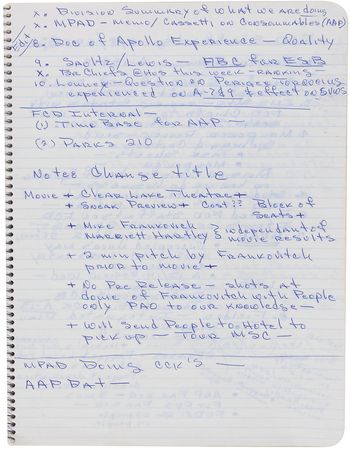 x. Division Summary of what we are doing
x. MPAD - Memo/Cassetti on Consumables (AAP)
8. Doc of Apollo Experience - Quality
9. Saultz/Lewis - ABC for ESB
x. Br Chiefs @ Hqs this week - Ranking
10. Lunney - Question on Perigee Torquing
experienced on A-7&9 & effect on
FCD Internal -
(1) Time Base for AAP -
(2) Parks 210
Notes Change title
Movie + Clear Lake Theatre +
+ Sneak Preview + Cost?? Block of
Seats +
+ Mike Frankovich
Marriett Hartley } independent of
movie results
+ 2 min pitch by Frankovitch
prior to movie +
+ No Pre Release - shots at
dome of Frankovitch with People
only PAO to our knowledge -
+ Will send People to Hotel to
pick up - Tour MSC -
MPAD Doing CCK's -
AAP Dat -